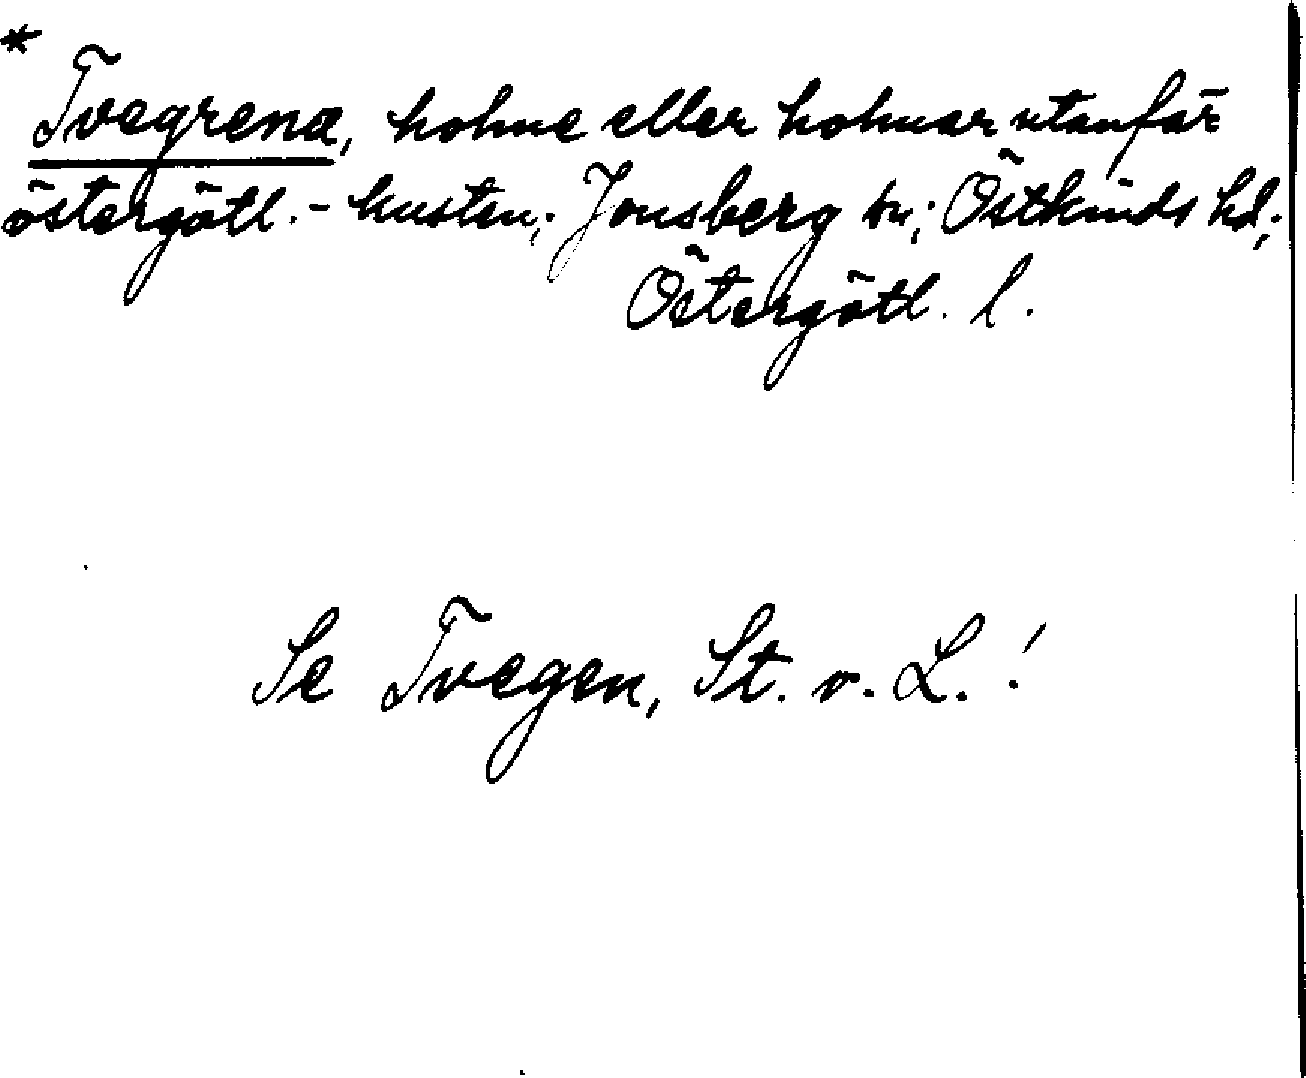 * Tvegrena, holme eller holmar utanför
östergötl.- kusten; Jonsberg sn; Östkinds hd;
Östergötl. l.
Se Tvegen, St. o. L.!